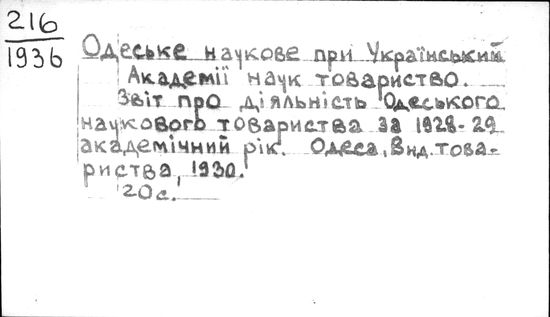 216
1936
Одеське наукове при Український
Академії наук товариство.
Звіт про діяльність Одеського
наукового товариства за 1928-29
академічний рік. Одеса, Вид. това-
риства, 1930.
20с.